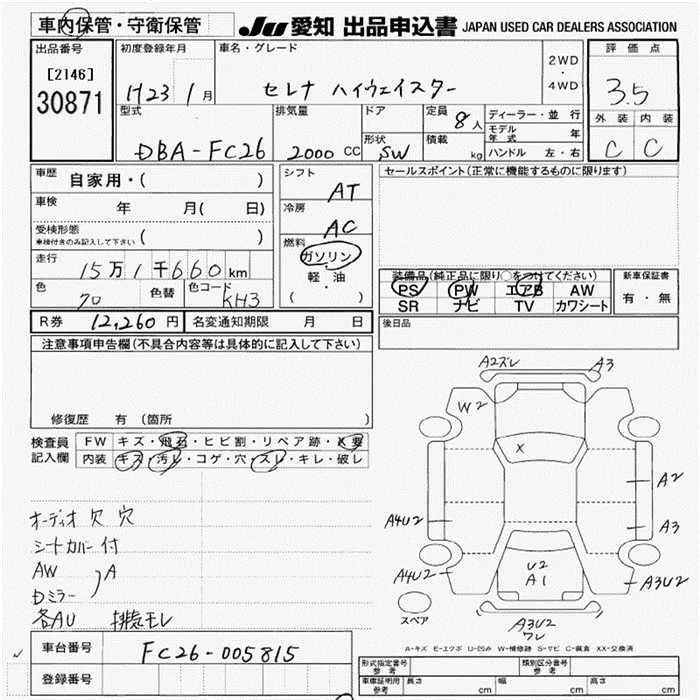 車内保管・守衛保管 JU 愛知 出品申込書 JAPAN USED CAR DEALERS ASSOCIATION
出品番号 初度登録年月 車名・グレード 2WD・4WD 評価点
[2146] 30871 H23 1月 セレナ ハイウェイスター 3.5
型式 排気量 ドア 定員 8人 ディーラー・並行 外装 内装
DBA-FC26 2000 CC 形状 SW 積載 kg モデル年式 年 C C
ハンドル 左・右
車歴 自家用・( ) シフト AT セールスポイント(正常に機能するものに限ります)
車検 年 月( 日) 冷房 AC
受検形態 車検付きのみ記入して下さい ( ) 燃料 ガソリン
走行 15万1千660km 軽・油
装備品(純正品に限り○をつけてください) 新車保証書
色 70 色替 色コード KH3 ( ) PS PW エアB AW 有・無
SR ナビ TV カワシート
R券 12,260円 名変通知期限 月 日 後日品
注意事項申告欄(不具合内容等は具体的に記入して下さい)
修復歴 有 (箇所 )
検査員 FW キズ・飛石・ヒビ割・リペア跡・X要
記入欄 内装 キズ・汚レ・コゲ・穴・スレ・キレ・破レ
オーディオ欠 穴
シートカバー付
AW
Dミラー ) A
各AU 排気モレ
A2ズレ A3
W2
X
A2
A4U2 A3
A4U2 U2 A1 A3U2
スペア A3U2 ワレ
A-キズ E-エクボ U-凹み W-補修跡 S-サビ C-腐食 XX-交換済
車台番号 FC26-005815
登録番号
形式指定番号 参考 類別区分番号 参考
車庫証明用 参考 長さ cm 幅 cm 高さ cm